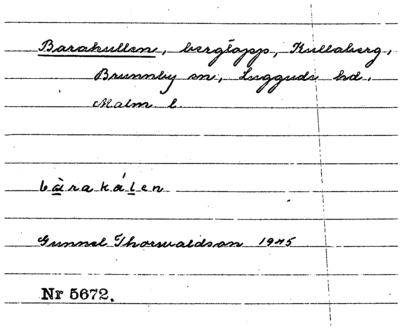 Barakullen, bergtopp, Kullaberg,
Brunnby sn, Luggude hd,
Malm l.
bàrakálen
Gunnel Thorwaldson 1945
Nr 5672.